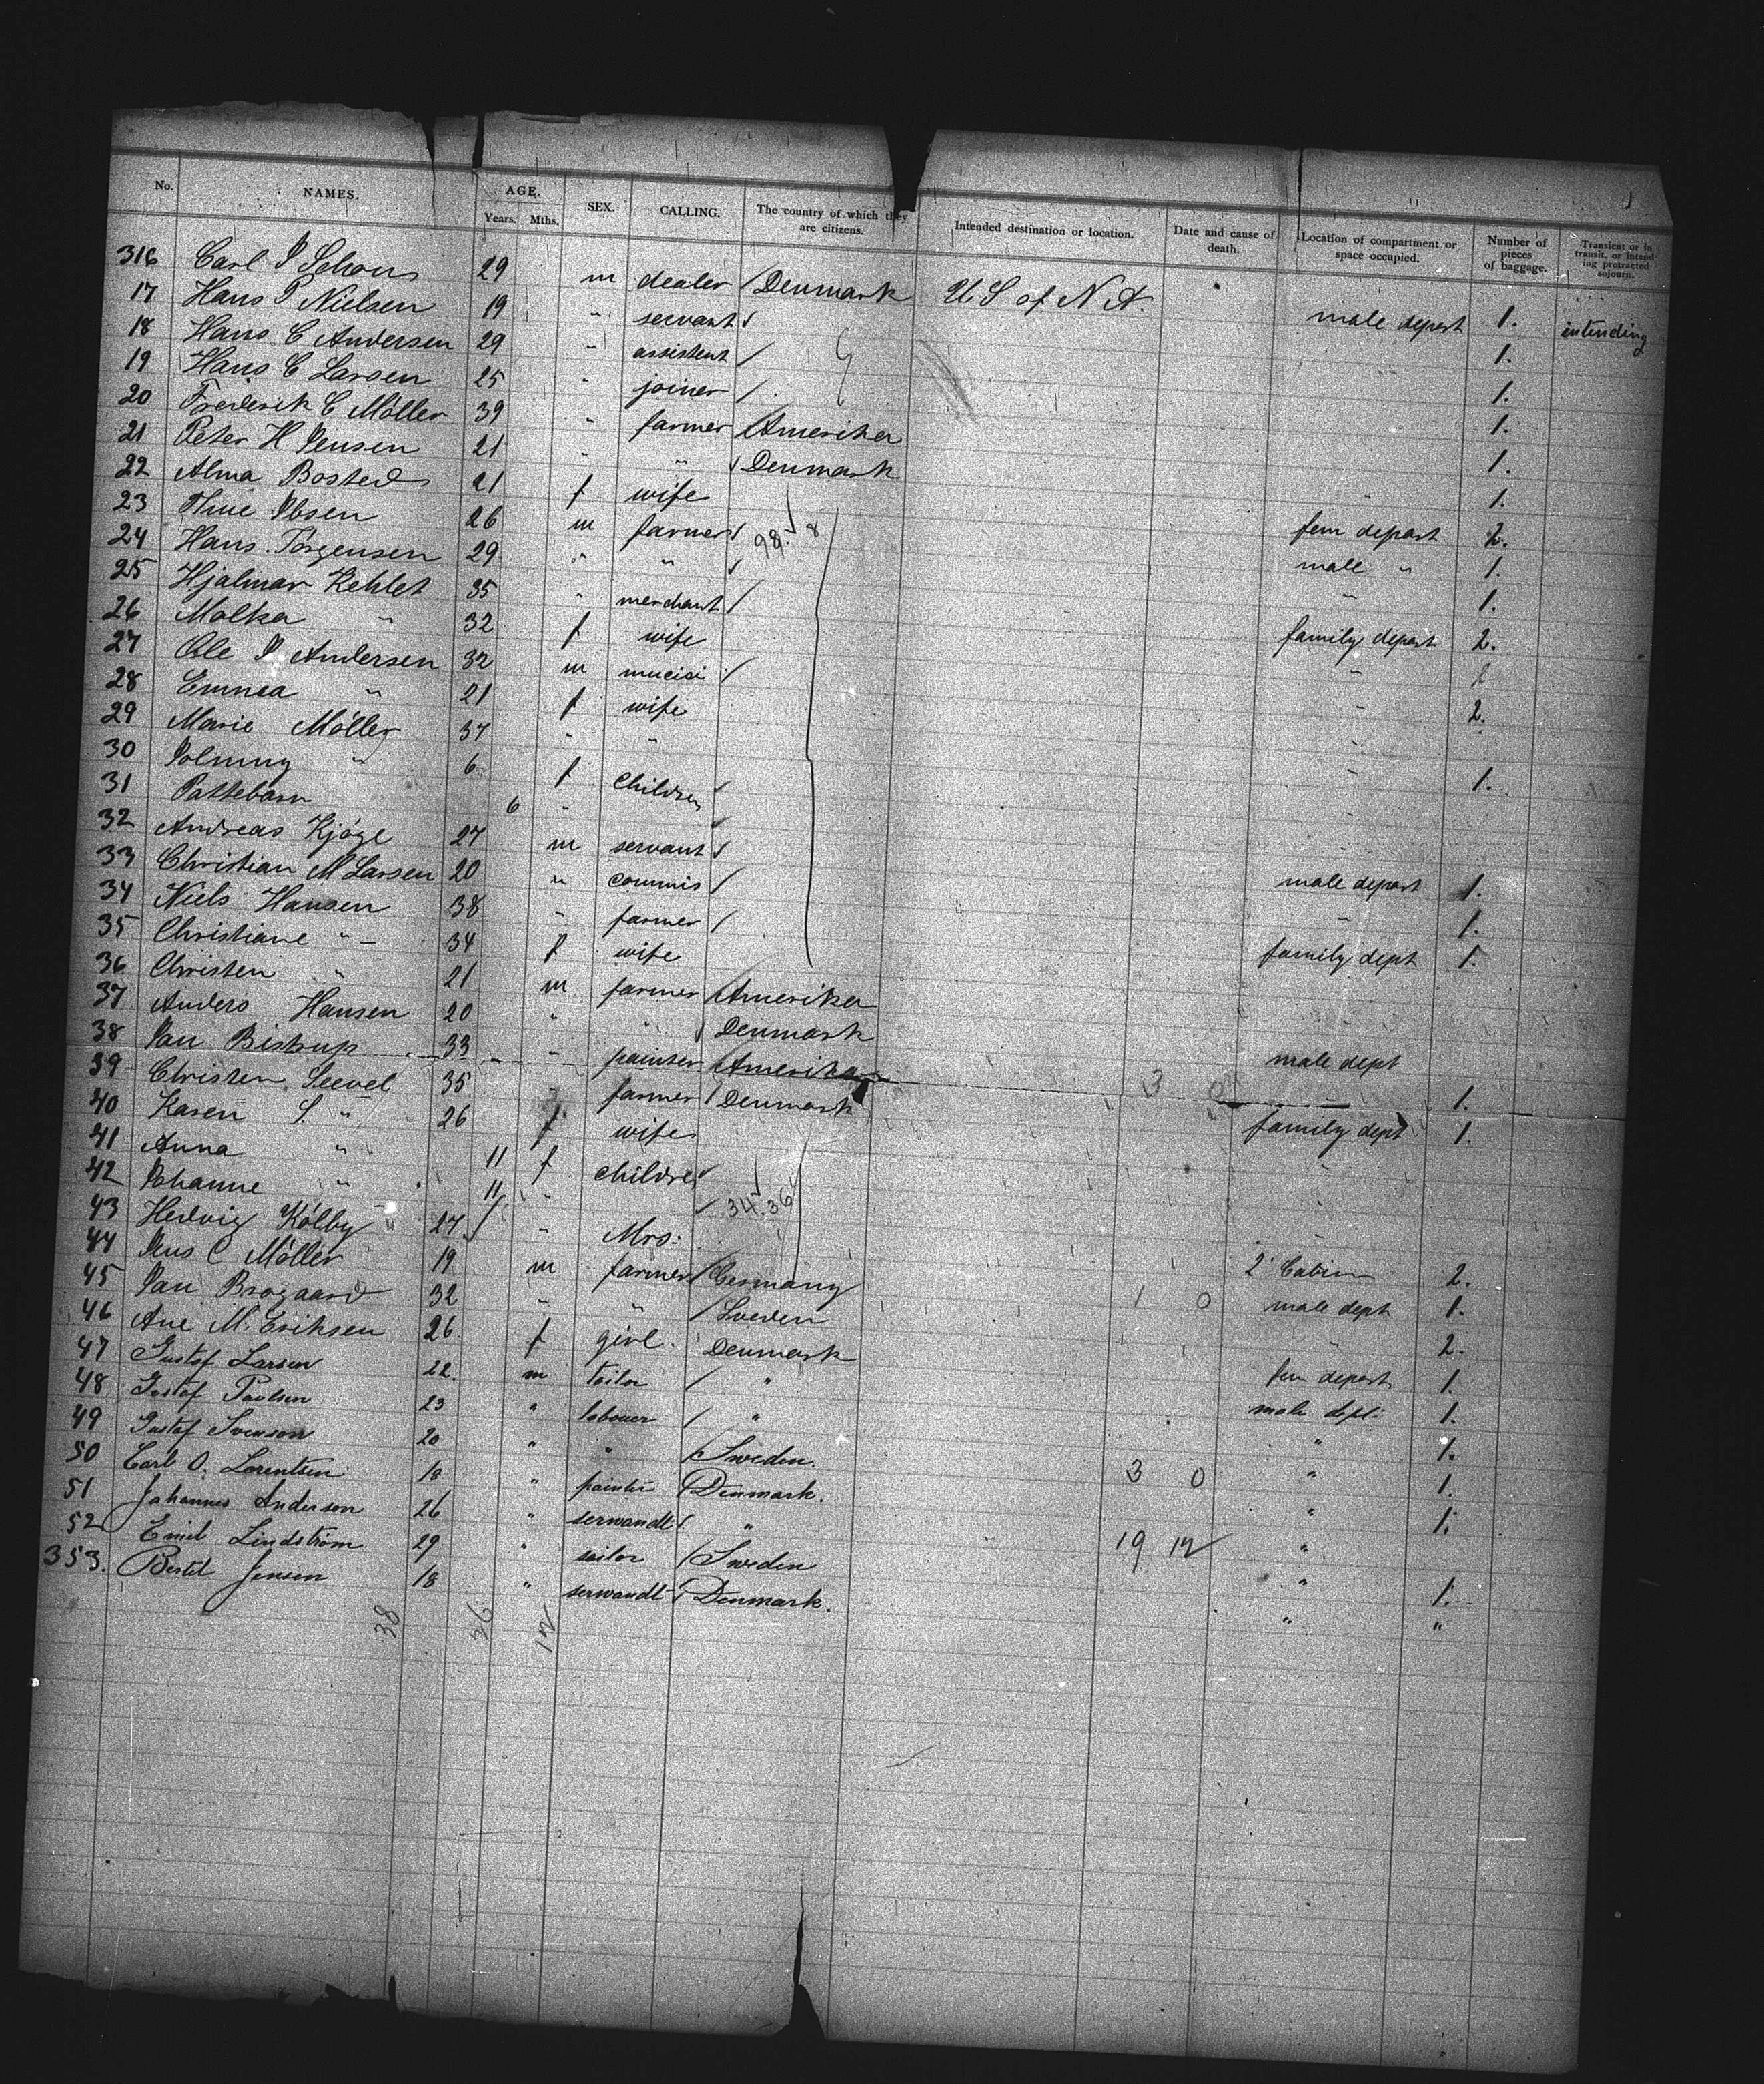 No. NAMES. AGE. Years. Mths. SEX. CALLING. The country of which they are citizens. Intended destination or location. Date and cause of death. Location of compartment or space occupied. Number of pieces of baggage. Transient or in transit, or intending protracted sojourn.
316 Carl J Schou 29 m dealer / Denmark U S of N A. male depart 1. intending
17 Hans P Nielsen 19 " servant / 1.
18 Hans C Andersen 29 " assistent / 1.
19 Hans C Larsen 25 " joiner / 1.
20 Frederik C Möller 39 " farmer / Amerika 1.
21 Peter H Jensen 21 " " / Denmark " 1.
22 Alma Bosted 21 f wife fem depart 2.
23 Thue Ibsen 26 m farmer / 98. 8 male " 1.
24 Hans Jörgensen 29 " " / " 1.
25 Hjalmar Kehlet 35 " merchant / family depart 2.
26 Malka " 32 f wife "
27 Ole J Andersen 32 m mucisi / " 2.
28 Emma " 21 f wife "
29 Marie Möller 37 " " " 1.
30 Solmmy " 6 f Children / "
31 Pattebarn 6 " / "
32 Andreas Kjöge 27 m servant / male depart 1.
33 Christian M Larsen 20 " commis / " 1.
34 Niels Hansen 38 " farmer / family dept 1.
35 Christiane " 34 f wife
36 Christen " 21 m farmer / Amerika
37 Anders Hansen 20 " " / Denmark male dept
38 Jan Bistrup 33 " painter / Amerika 3 0 " 1.
39 Christen Leevel 35 farmer / Denmark family dept 1.
40 Karen S. " 26 f wife "
41 Anna " 11 f children / "
42 Johanne " 11 " / 34.36 "
43 Hedvig Kölby 27 " Mrs. 2 Cabin 2.
44 Jens C Möller 19 m farmer / Germany 1 0 male dept 1.
45 Jan Brogaard 32 " " / Sveden " 2.
46 Ane M. Eriksen 26 f girl. Denmark fem depart 1.
47 Gustaf Larsen 22. m tailor / " male dept. 1.
48 Gustaf Paulsen 23 " labouer / " " 1.
49 Gustaf Svenson 20 " " / Sweden. 3 0 " 1.
50 Carl O. Lorentsen 18 " painter / Denmark. " 1.
51 Johannes Anderson 26 " serwandt / " 19 12 "
52 Emil Lindström 29 " sailor / Sweden " 1.
353. Bertel Jensen 18 " serwandt / Denmark. " "
38 26 12